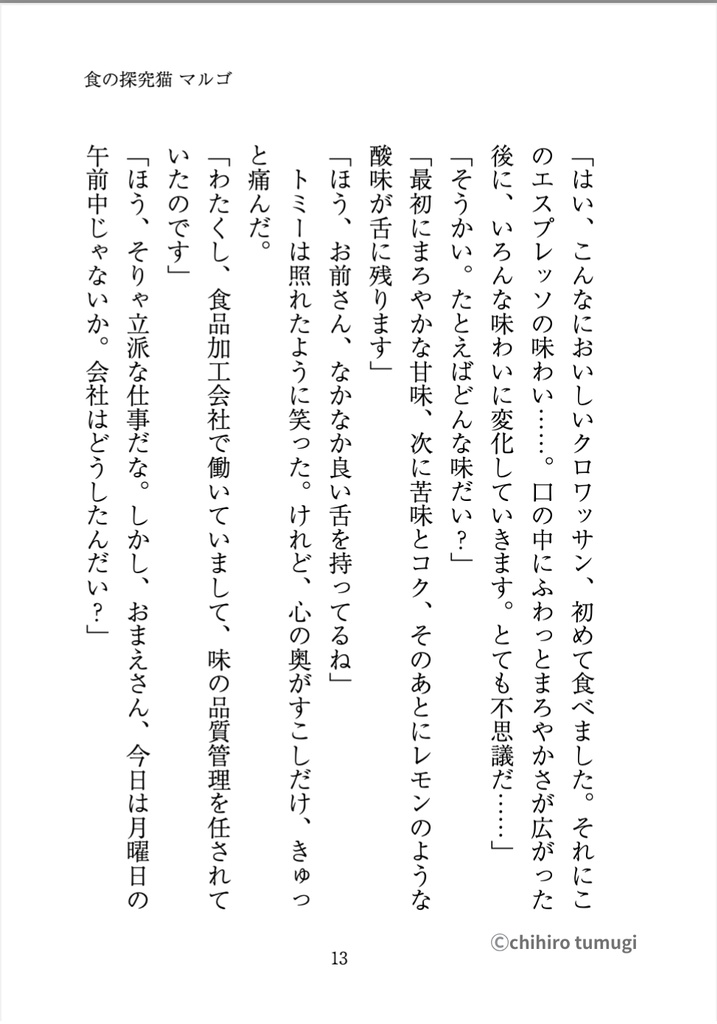 食の探究猫 マルゴ
「はい、こんなにおいしいクロワッサン、初めて食べました。それにこ
のエスプレッソの味わい……。口の中にふわっとまろやかさが広がった
後に、いろんな味わいに変化していきます。とても不思議だ……」
「そうかい。たとえばどんな味だい？」
「最初にまろやかな甘味、次に苦味とコク、そのあとにレモンのような
酸味が舌に残ります」
「ほう、お前さん、なかなか良い舌を持ってるね」
　トミーは照れたように笑った。けれど、心の奥がすこしだけ、きゅっ
と痛んだ。
「わたくし、食品加工会社で働いていまして、味の品質管理を任されて
いたのです」
「ほう、そりゃ立派な仕事だな。しかし、おまえさん、今日は月曜日の
午前中じゃないか。会社はどうしたんだい？」
Ⓒchihiro tumugi
13